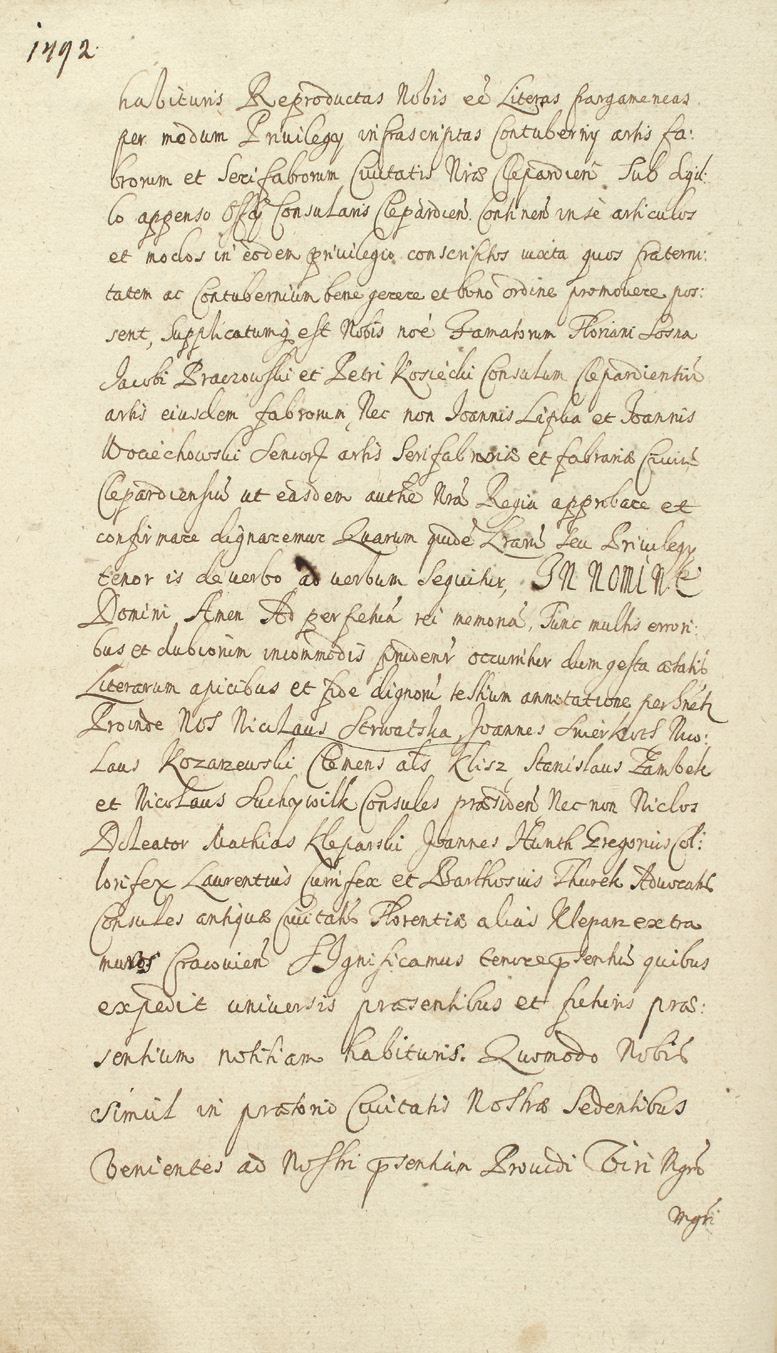 1492
habituris Reproductas Nobis eē Literas pargameneas
per modum Privilegij infrascriptas Contubernij artis fa:
brorum et Serifabrorum Civitatis Nræ Clepardien̄ Sub Sigil:
lo appenso Offij Consularis Clepardien̄. Continen̄ in se articulos
et modos in eodem privilegio conscriptos iuxta quos fraterni:
tatem ac Contubernium bene gerere et bono ordine promovere pos:
sent, Supplicatumq̨ est Nobis noē Famatorum Floriani Sosna
Jacobi Praczowski et Petri Kosiecki Consulum Clepardientiū
artis eiusdem fabrorum, Nec non Joannis Lipka et Joannis
Wociechowski Senior artis Serifabrariæ et fabrariæ Civiū
Clepardiensiū ut easdem authē Nrā Regia approbare et
confirmare dignaremur Quarum quidē Lrarū seu Privilegij
tenor is de verbo ad verbum Sequitur, IN NOMINE
Domini Amen Ad perpetuā rei memoriā, Tunc multis errori:
bus et dubiorum incommodis prudenr̄ occurritur dum gesta ætatis
Literarum apicibus et fide dignorū testium annotatione
Proinde Nos Nicolaus Strwatska, Joannes Swierkwst Nico:
laus Kozarzewski Clemens als Klisz, Stanislaus Zambek
et Nicolaus Suchywilk Consules præsiden̄ Nec non Niclos
Doleator Mathias Kleparski Joannes Hunth Gregorius Col:
lorifex Laurentius Currifex et Barthosius Thurek Advocatus
Consules antiquæ Civitatis Florentiæ alias Klepar extra
muros Cracovien̄ Significamus tenore p̄sentius quibus
expedit universis præsentibus et futuris præ:
sentium notitiam habituris. Quomodo Nobis
simul in prætorio Civitatis Nostræ Sedentibus
Venientes ad Nostri p̄sentiam Providi Viri Mgrī
Mgrī